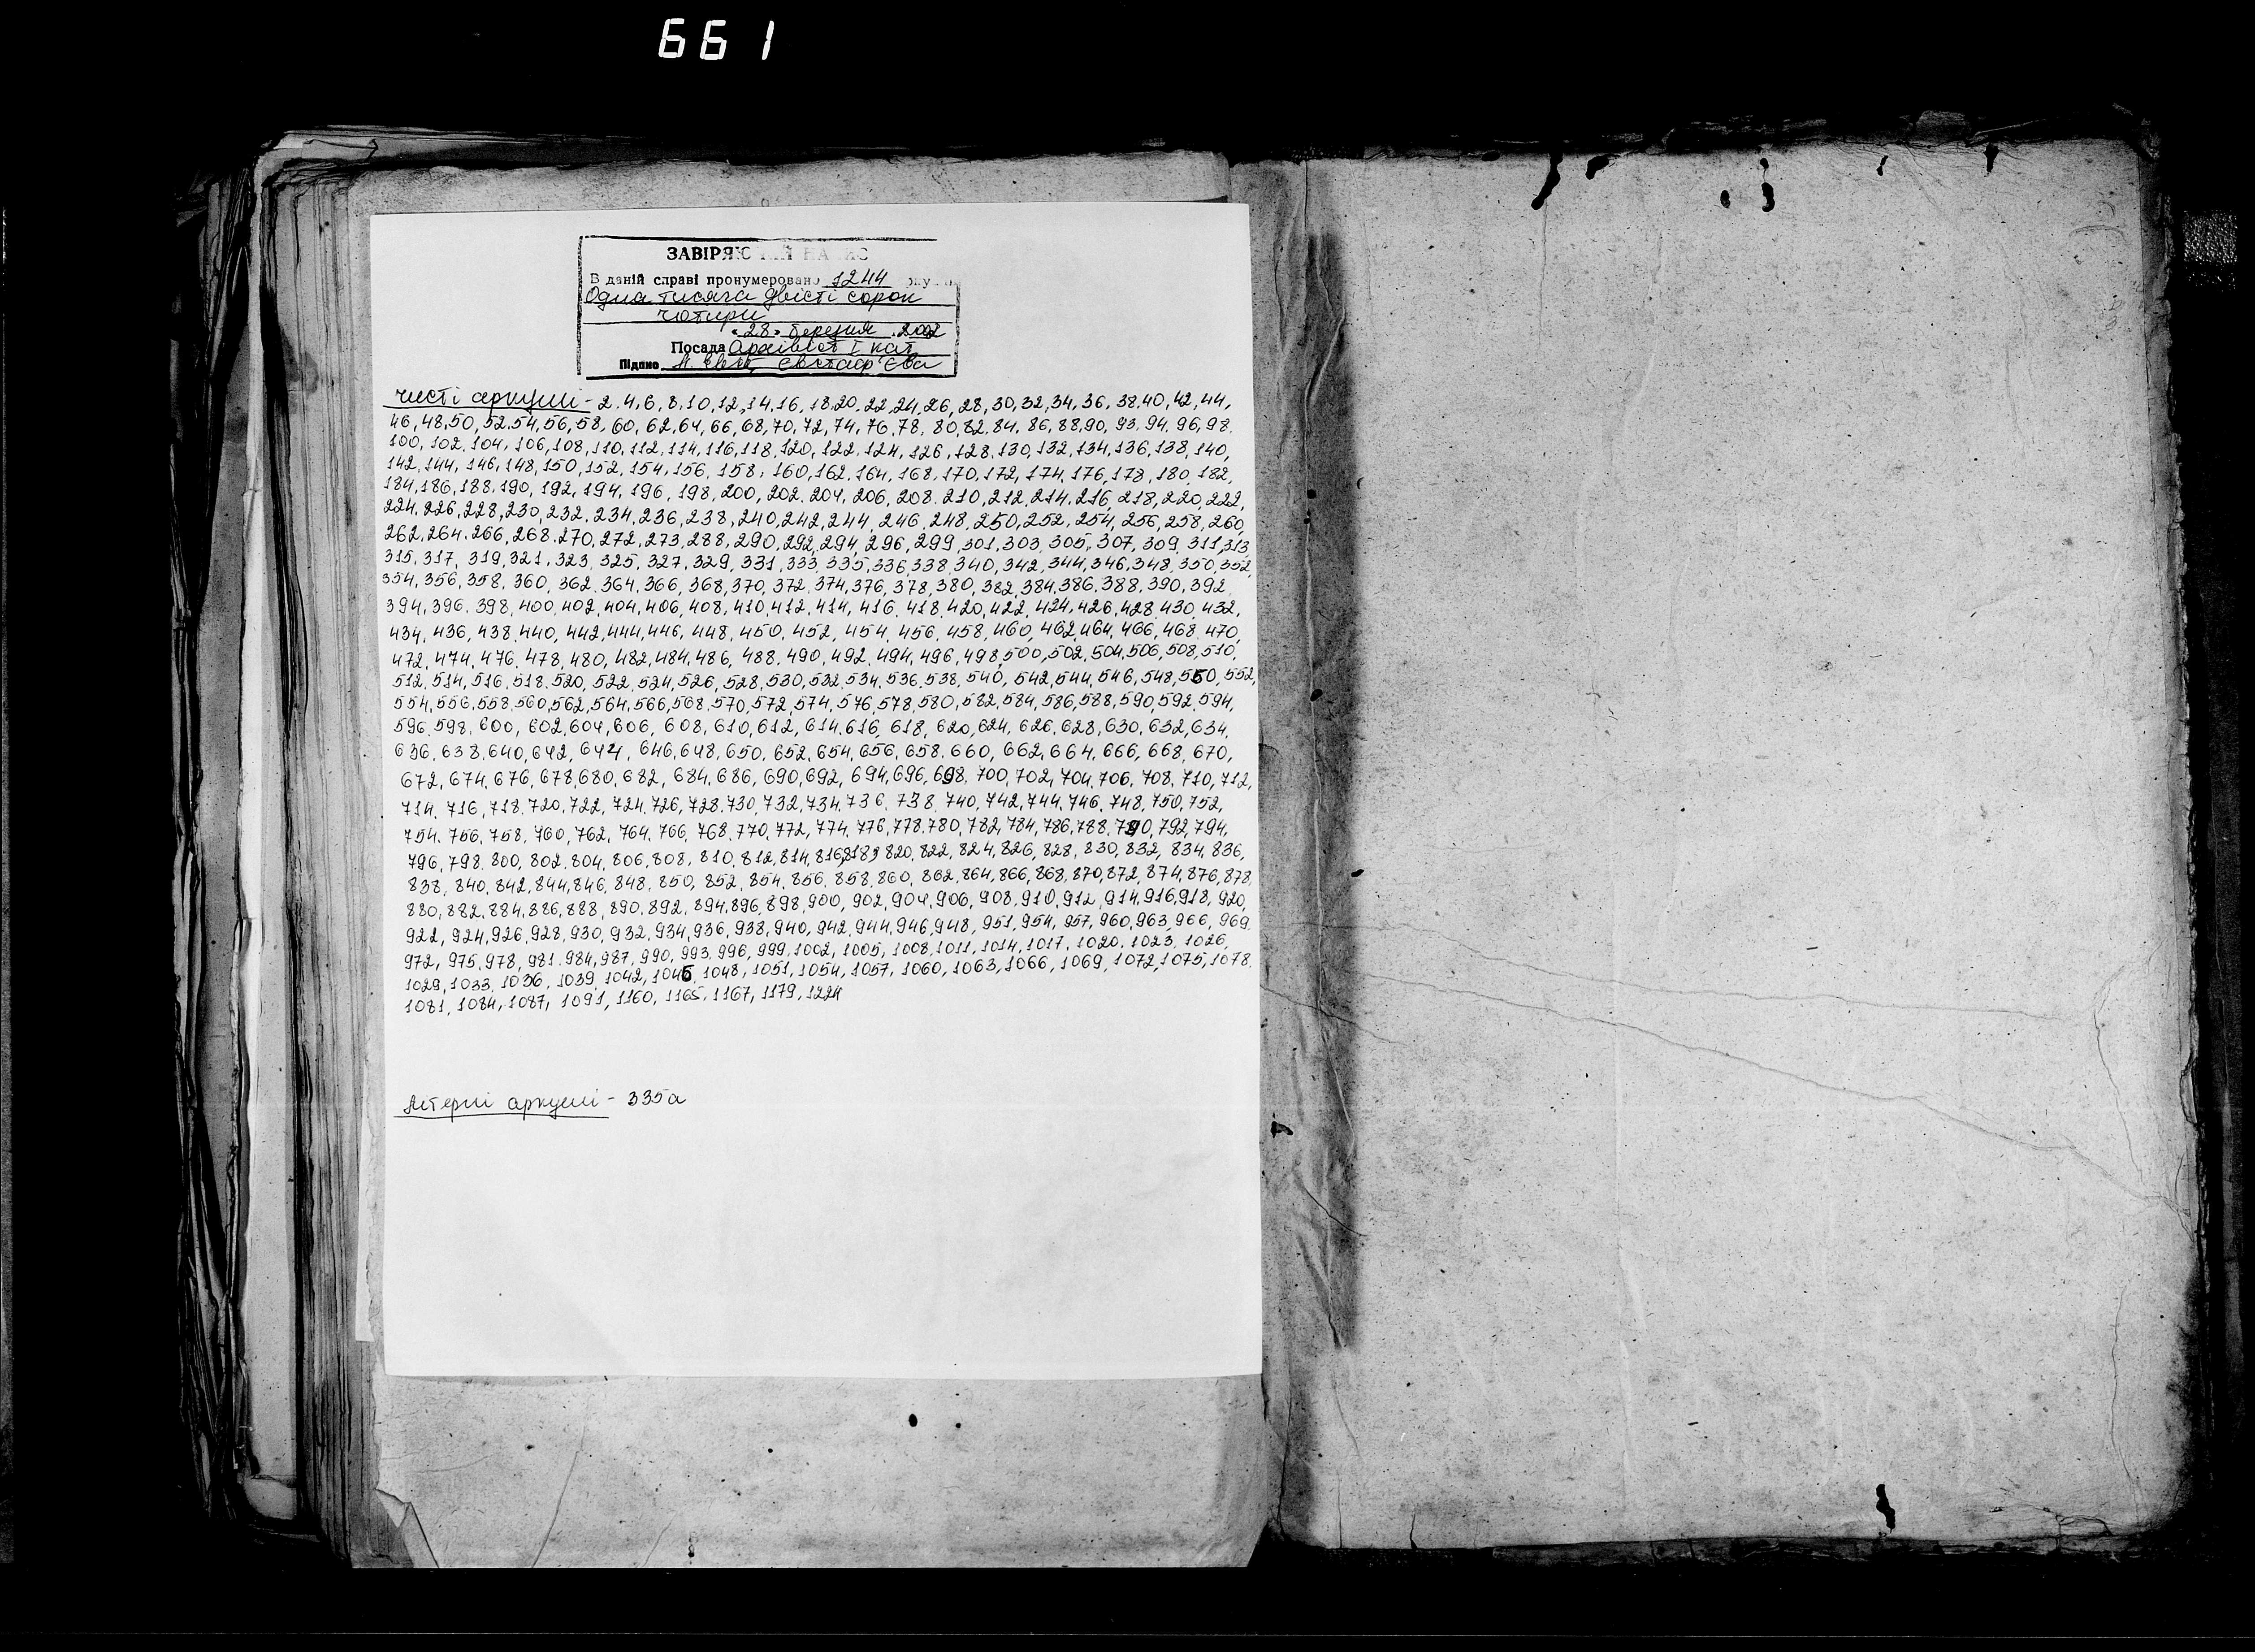 661
ЗАВІРЯ
В даній справі пронумеровано 1244
Одна тисяча двісті сорок
чотири
"28" березня 2002
Посада Архівіст І кат
Підпис Євстаф'єва
Чисті аркуші - 2.4,6,8,10,12,14,16,18,20,22,24,26,28,30,32,34,36,38,40,42,44,
46,48,50,52,54,56,58,60,62,64,66,68,70,72,74,76,78,80,82,84,86,88,90,93,94,96,98.
100,102,104,106,108,110,112,114,116,118,120,122,124,126,128,130,132,134,136,138,140,
142,144,146,148,150,152,154,156,158,160,162,164,168,170,172,174,176,178,180,182,
184,186,188,190,192,194,196,198,200,202,204,206,208,210,212,214,216,218,220,222,
224,226,228,230,232,234,236,238,240,242,244,246,248,250,252,254,256,258,260,
262,264,266,268,270,272,273,288,290,292,294,296,299,301,303,305,307,309,311,313,
315,317,319,321,323,325,327,329,331,333,335,336,338,340,342,344,346,348,350,352,
354,356,358,360,362,364,366,368,370,372,374,376,378,380,382,384,386,388,390,392
394,396,398,400,402,404,406,408,410,412,414,416,418,420,422,424,426,428,430,432,
434,436,438,440,442,444,446,448,450,452,454,456,458,460,462,464,466,468,470,
472,474,476,478,480,482,484,486,488,490,492,494,496,498,500,502,504,506,508,510,
512,514,516,518,520,522,524,526,528,530,532,534,536,538,540,542,544,546,548,550,552,
554,556,558,560,562,564,566,568,570,572,574,576,578,580,582,584,586,588,590,592,594,
596,598,600,602,604,606,608,610,612,614,616,618,620,624,626,628,630,632,634,
636,638,640,642,644,646,648,650,652,654,656,658,660,662,664,666,668,670,
672,674,676,678,680,682,684,686,690,692,694,696,698,700,702,704,706,708,710,712,
714,716,718,720,722,724,726,728,730,732,734,736,738,740,742,744,746,748,750,752,
754,756,758,760,762,764,766,768,770,772,774,776,778,780,782,784,786,788,790,792,794,
796,798,800,802,804,806,808,810,812,814,816,818,820,822,824,826,828,830,832,834,836,
838,840,842,844,846,848,850,852,854,856,858,860,862,864,866,868,870,872,874,876,878,
880,882,884,886,888,890,892,894,896,898,900,902,904,906,908,910,912,914,916,918,920,
922,924,926,928,930,932,934,936,938,940,942,944,946,948,951,954,957,960,963,966,969,
972,975,978,981,984,987,990,993,996,999,1002,1005,1008,1011,1014,1017,1020,1023,1026,
1029,1033,1036,1039,1042,1045,1048,1051,1054,1057,1060,1063,1066,1069,1072,1075,1078,
1081,1084,1087,1091,1160,1165,1167,1179,1224
Літерні аркуші - 335а